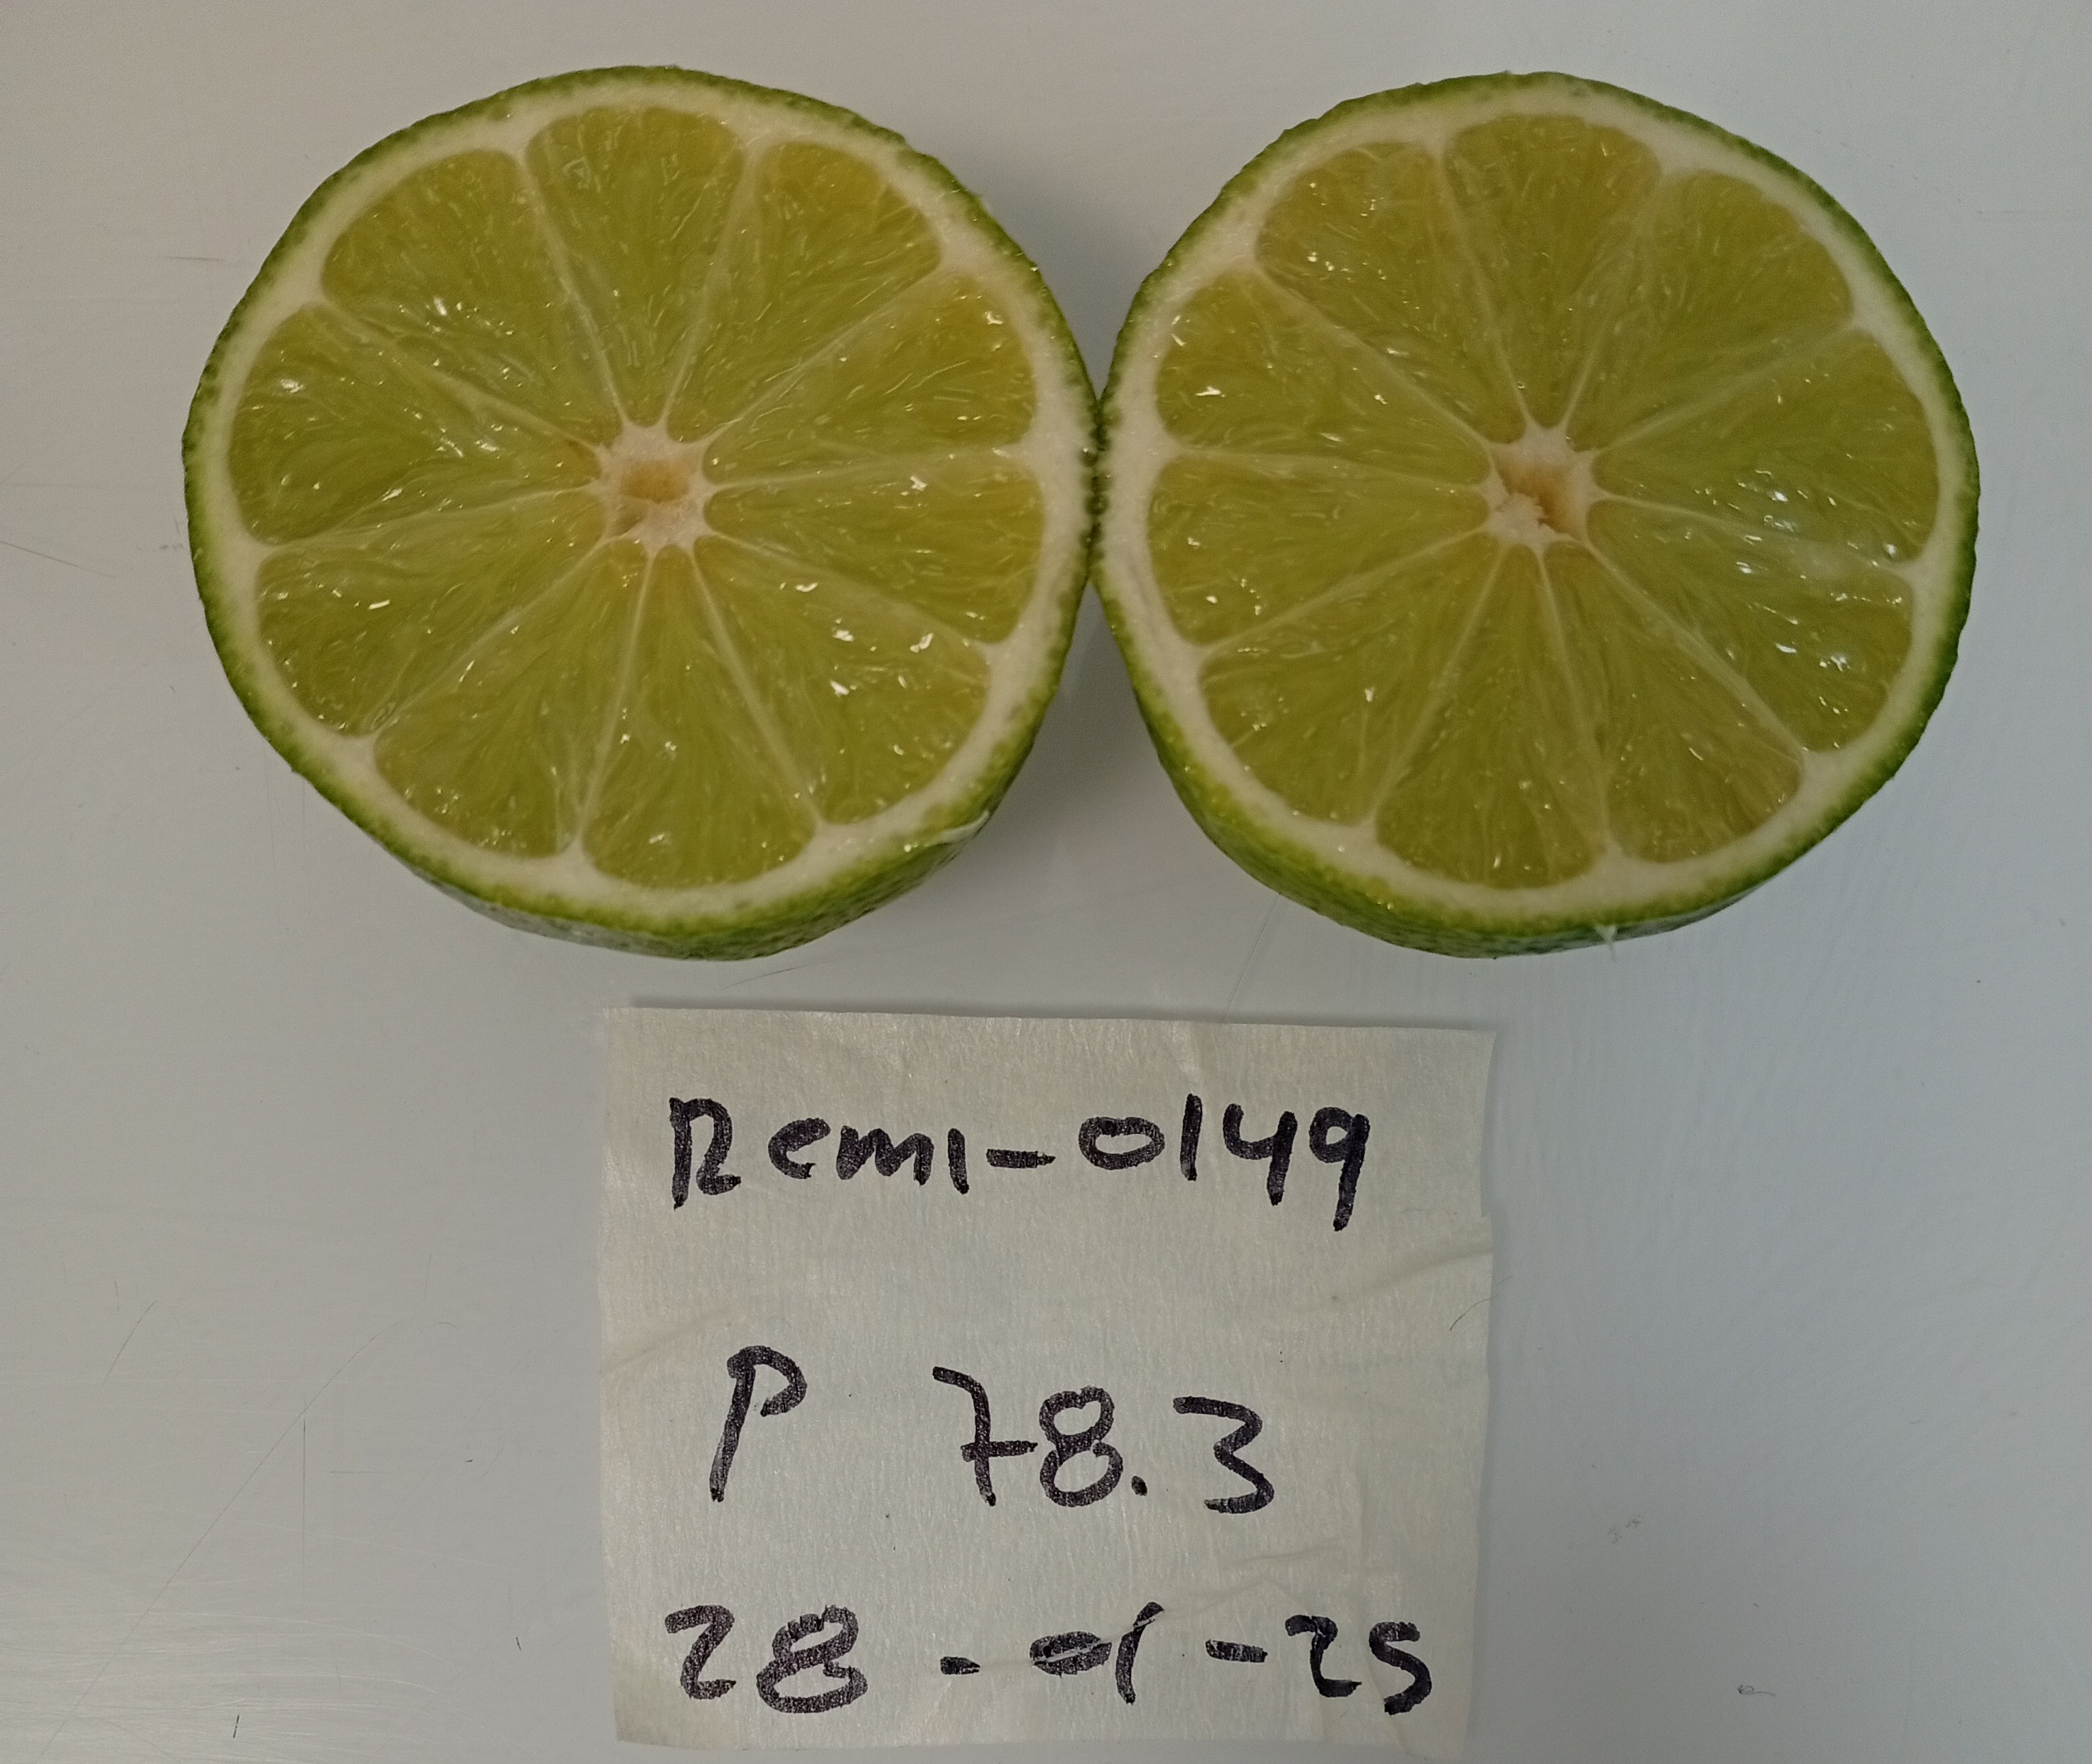 Remi-0149
P 78.3
28-01-25